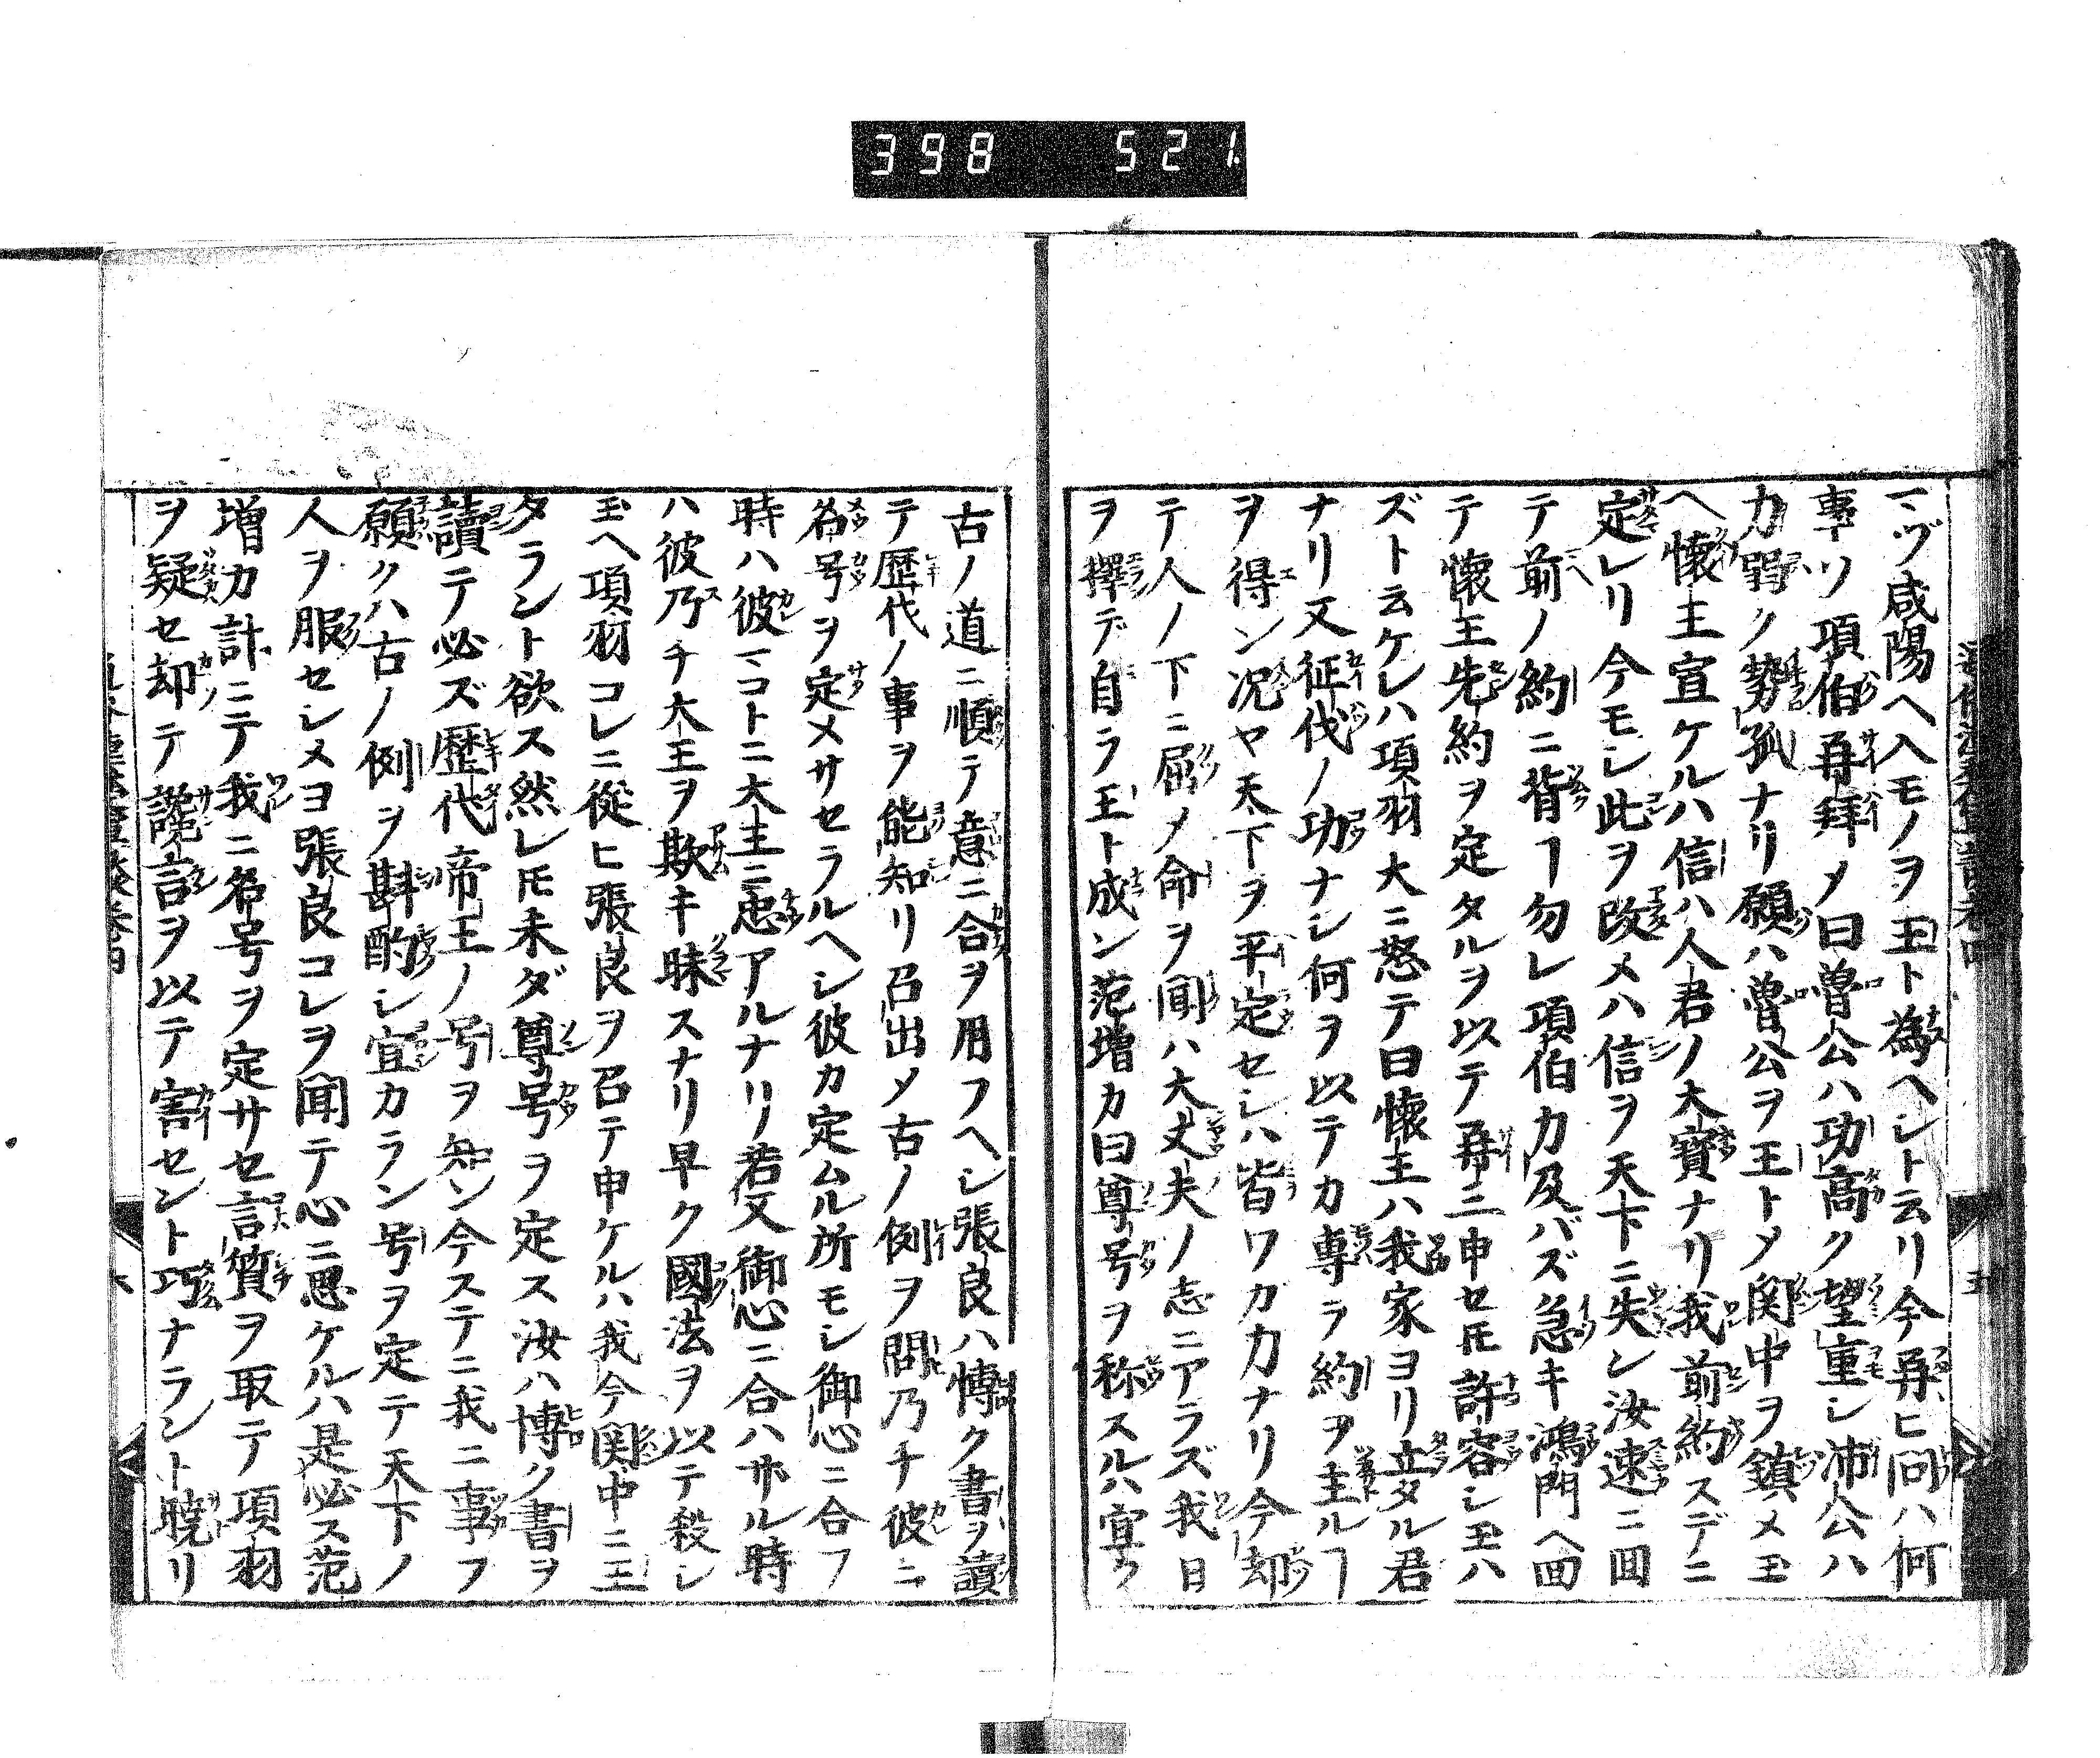 398 521
マヅ咸陽ヘ入モノヲ王ト為ヘシト云リ今再ヒ問ハ何
事ソ項伯再拜メ曰魯公ハ功高ク望重シ沛公ハ
力弱ク勢孤ナリ願ハ魯公ヲ王トメ関中ヲ鎮メ玉
ヘ懐王宣ケルハ信ハ人君ノ大寶ナリ我前約スデニ
定レリ今モシ此ヲ改メハ信ヲ天下ニ失ン汝速ニ回
テ前ノ約ニ背ヿ勿レ項伯力及バズ急キ鴻門ヘ回
テ懐王先約ヲ定タルヲ以テ再三申セ𪜈許容シ玉ハ
ズト云ケレハ項羽大ニ怒テ曰懐王ハ我家ヨリ立タル君
ナリ又征伐ノ功ナシ何ヲ以テカ専ラ約ヲ主ルヿ
ヲ得ン况ヤ天下ヲ平定セシハ皆ワカ力ナリ今却
テ人ノ下ニ屈メ命ヲ聞ハ大丈夫ノ志ニアラズ我日
ヲ擇デ自ラ王ト成ン范増カ曰尊号ヲ称スルハ宜ク
古ノ道ニ順テ意ニ合ヲ用フヘシ張良ハ博ク書ヲ讀
テ歴代ノ事ヲ能知リ召出メ古ノ例ヲ問乃チ彼ニ
名号ヲ定メサセラルヘシ彼カ定ムル所モシ御心ニ合フ
時ハ彼マコトニ大王ニ忠アルナリ若又御心ニ合ハサル時
ハ彼乃チ大王ヲ欺キ昧スナリ早ク國法ヲ以テ殺シ
玉ヘ項羽コレニ從ヒ張良ヲ召テ申ケルハ我今関中ニ王
タラント欲ス然レ𪜈未ダ尊号ヲ定ス汝ハ博ク書ヲ
讀テ必ズ歴代帝王ノ号ヲ知ン今ステニ我ニ事フ
願クハ古ノ例ヲ斟酌シ宜カラン号ヲ定テ天下ノ
人ヲ服セシメヨ張良コレヲ聞テ心ニ思ケルハ是必ス范
増カ計ニテ我ニ名号ヲ定サセ言質ヲ取テ項羽
ヲ疑セ却テ讒言ヲ以テ害セント巧ナラント暁リ